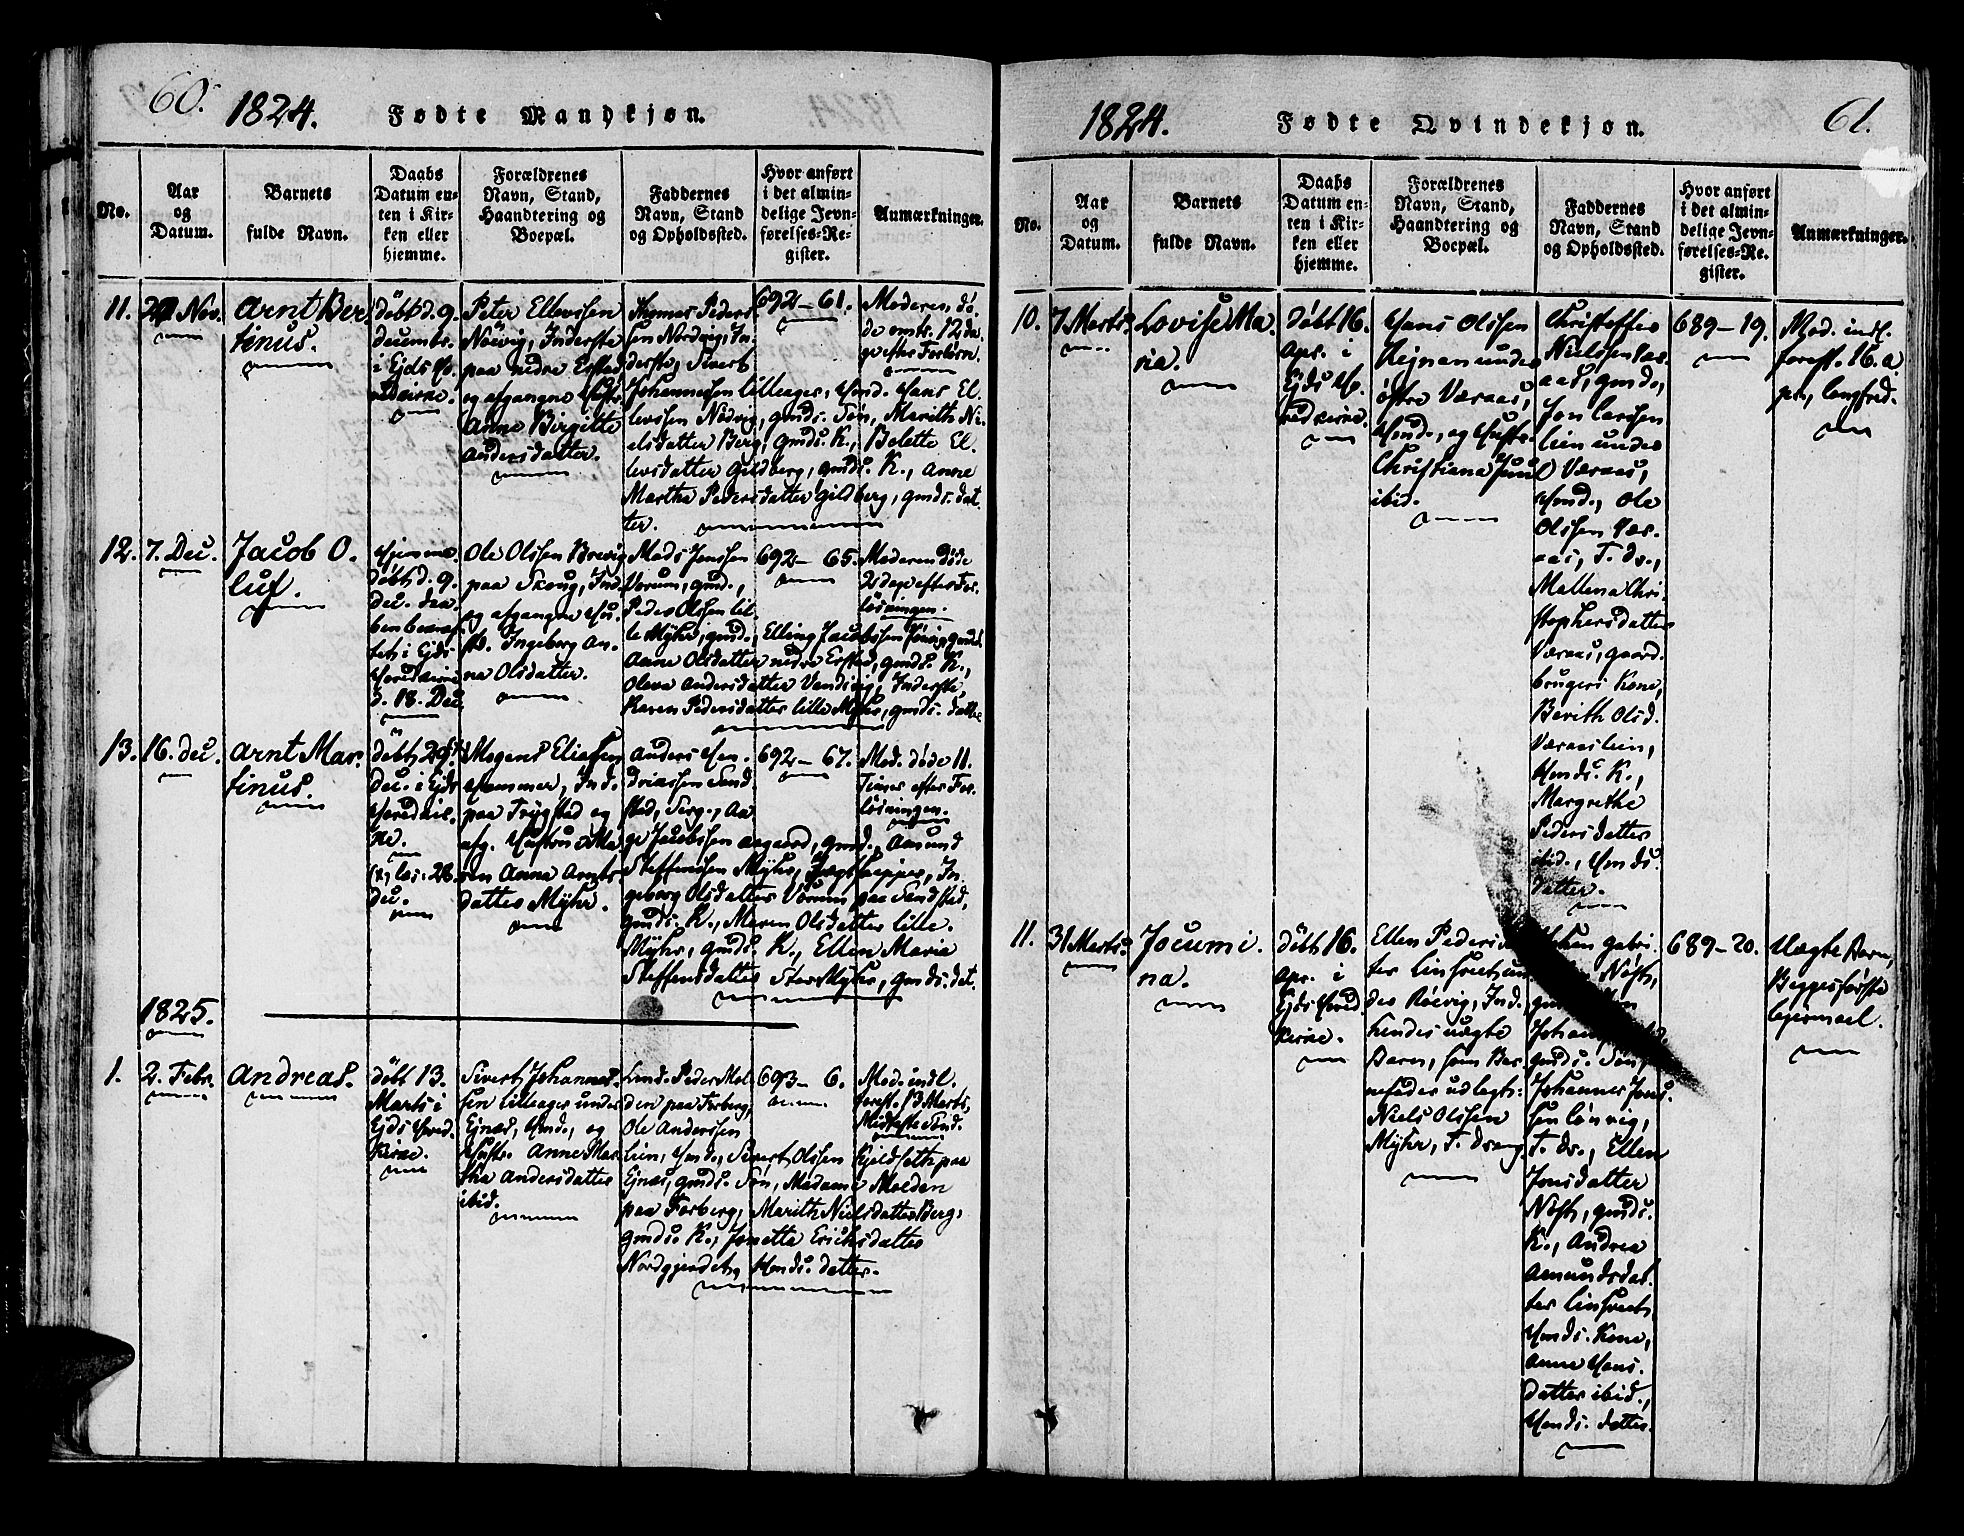 60.
1824. Fødte Mandkjøn.
No.
Aar
og
Datum.
Barnets
fulde Navn.
Daabs
Datum en-
ten i Kir-
ken eller
hjemme.
Forældrenes
Navn, Stand,
Haandtering og
Boepæl.
Faddernes
Navn, Stand
og Opholdssted.
Hvor anført
i det almin-
delige Jevn-
førelses-Re-
gister.
Anmærkninger.
11.
Nov.
Arnt Ber
tinus.
døbt d. 9.
decembr.
i Ejds Ho.
Peter Ellevssen
Nöevig, Inderste
paa nedre
og afgangne Hustr.
Anne Birgitte
Andersdatter.
Thomas Peders
sen Nordvig, In
derste, Sivert
Johannessen Lilleager, Hmd. Hans El
levssen Nöevig, gmds. Søn, Marith Ni
elsdatter Berg, gmds. K., Bolette El
levsdatter Gildberg, gmds. K., Anne
Martha Pedersdatter Gildberg, gmds. dat
ter.
692 – 61.
Moderen dö
de omtr. 12 da
ge efter Forløsn.
12.
7. Dec.
Jacob O.
luf.
Hjemme
døbt d. 9.
dec. daa
ben
tet i Ejds
Herredkirke
d. 18. Dec.
Ole Olssen Brevig
paa Skoug, Ind.
og afgangne Hu
str. Ingeborg An
na Olsdatter.
Mads Jenssen
Vorum, gmd.,
Peder Olssen lil
le Mÿhr, gmd., Elling Jacobssen gmdsk.
Anne Olsdatter nedre gmds. K.,
Oleva Andersdatter Inderste,
Karen Pedersdatter lille Mÿhr, gmds. datter
692 – 65.
Moderen døde
2 dage efter For
løsningen.
13.
16. dec.
Arnt Mar
tinus.
døbt 29.
Dec. i Ejds
Herredkir
ke.
dec.
Mogens Eliassen
Hammer, Ind.
paa Trÿgstad og
afg. Hustrue Ma
ren Anna Arnts
datter Mÿhr.
Anders Hen
drichsen Sand
stad, Serg., Aa
ge Jacobssen Aagaard, gmd., Amund
Steffenssen Mÿhr, Jægtskipper, In
geborg Olsdatter Vorum paa Sandstad,
gmds. K., Maren Olsdatter lille
Mÿhr, gmds. K., Ellen Maria
Steffensdatter Stor Mÿhr, gmds. dat.
692 – 67.
Mod. døde 11
Timer efter For
løsningen.
1825.
1.
2. Febr.
Andreas.
døbt 13.
Marts i
Ejds Hred.
Kirke.
Sivert Johannes
sen Lilleager under
Ejnæs, Hmd., og
Hustr. Anne Mar
tha Andersdatter
ibid.
Lind. Peder Mol
den paa Forberg,
Ole Anderssen
lien, Hmd., Sivert Olssen Kjeldseth paa
Ejnæs, gmds. Søn, Madame Molden
paa Forberg, Marith Nielsdatter Berg,
gmds. K., Jonetta Erichsdatter
Nordgjerdet, Hmds. datter.
693 – 6.
Mod. indl.
forest. 13 Marts,
Midfaste Sønd.
1824. Fødte Qvindekjøn.
61.
No.
Aar
og
Datum.
Barnets
fulde Navn.
Daabs
Datum en-
ten i Kir-
ken eller
hjemme.
Forældrenes
Navn, Stand,
Haandtering og
Boepæl.
Faddernes
Navn, Stand
og Opholdssted.
Hvor anført
i det almin-
delige Jevn-
førelses-Re-
gister.
Anmærkninger.
10.
7 Marts.
Lovise Ma
ria.
Døbt 16.
Apr. i
Ejds Her
redkirke.
Hans Olssen
Rejnan under
östre Væraas,
Hmd., og Hustr.
Christiana Juul
ibid.
Christoffer
Nielssen Vær
aas, gmd.,
Jon Larssen
lien under
Væraas,
Hmd., Ole
Olssen Vær
aas, T. dr.,
Mallena Chri
stophersdatter
Væraas, gaard
brugers Kone,
Berith Olsd.
Væraaslien,
Hmds. K.,
Margrethe
Pedersdatter
ibid., Hmds.
datter.
689 – 19.
Mod. indl.
forest. 16. a
pr., langfred.
11.
31 Marts.
Jocumi
na.
døbt 16.
Apr. i
Ejds Hred
kirke.
Ellen Pedersdat
ter un
der Röevig, Ind.
hendes uægte
Barn, som Bar
nefader udlagt:
Niels Olssen
Mÿhr, T. dreng
Gabri
Nøst,
Johan
gmds. Søn,
Johannes Jons
sen Lönvig,
T. dr., Ellen
Jonsdatter
Nøst, gmds.
K., Andrea
Amundsdat
ter
Hmds. Kone,
Anne Hans
datter ibid.,
Hmds. datter
689 – 20.
Uægte Barn,
Begges første
Lejermaal.